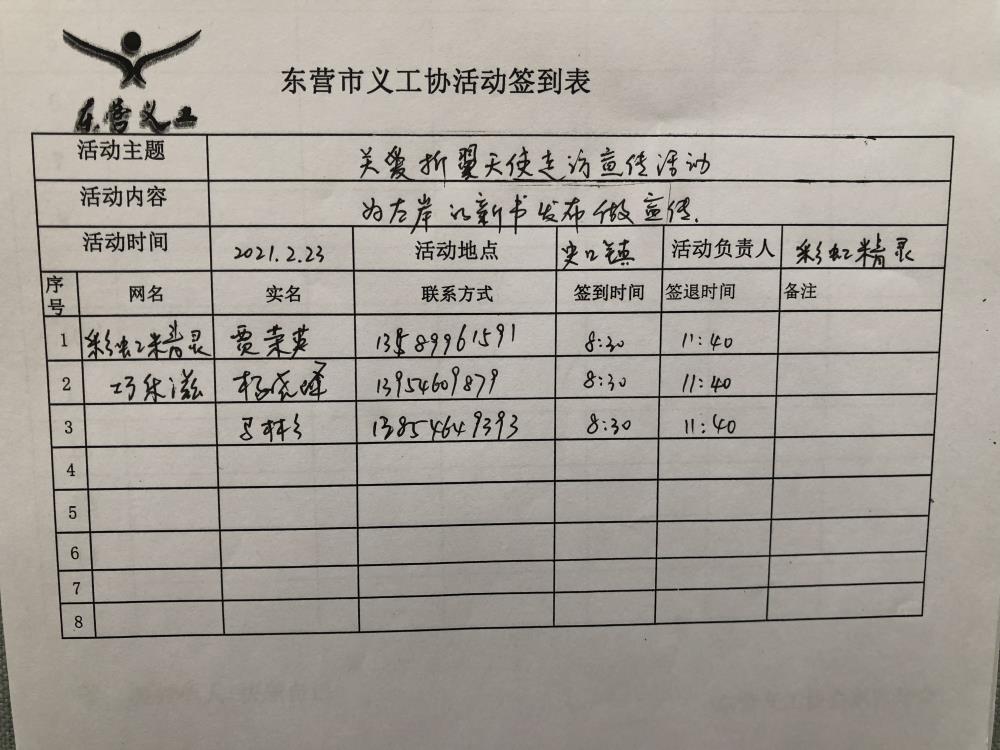 东营义工
东营市义工协活动签到表
活动主题 关爱折翼天使走访宣传活动
活动内容 为左岸的新书发布做宣传.
活动时间 2021.2.23 活动地点 镇 活动负责人 彩虹精灵
序号 网名 实名 联系方式 签到时间 签退时间 备注
1 彩虹精灵 贾荣英 13589961591 8:30 11:40
2 巧乐滋 杨晓峰 13954609879 8:30 11:40
3 13854649393 8:30 11:40
4
5
6
7
8